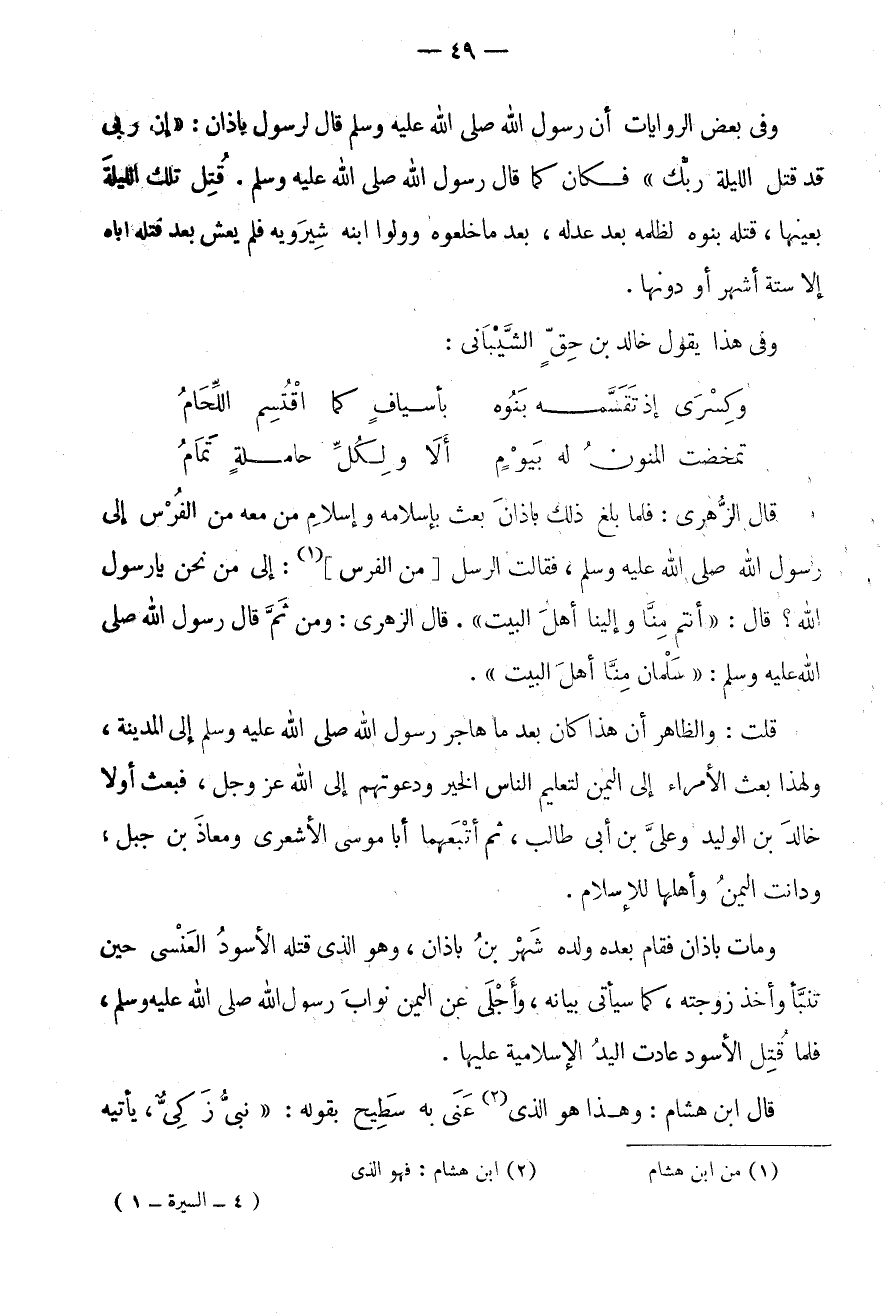 — ٤٩ —
وفى بعض الروايات أن رسول الله صلى الله عليه وسلم قال لرسول باذان : «إن ربى
قد قتل الليلة ربَّك » فـكان كما قال رسول الله صلى الله عليه وسلم . قُتِل تلك الليلةَ
بعينها ، قتله بنوه لظلمه بعد عدله ، بعد ماخلعوه وولوا ابنه شِيرَويه فلم يعش بعد قتله اباه
إلا ستة أشهر أو دونها .
وفى هذا يقول خالد بن حِقٍّ الشَّيْبَانى :
وكِسْرَى إذ تَقَسَّمـــه بَنُوه بأسـيافٍ كما اقْتُسِم اللِّحَامُ
تمخضت المنونُ له بَيوْمٍ أَلَا ولِـكُلِّ حامـلةٍ تَمَامُ
قال الزُّهرى : فلما بلغ ذلك باذانَ بعث بإسلامه وإسلامِ من معه من الفُرْس إلى
رسول الله صلى الله عليه وسلم ، فقالت الرسل [ من الفرس ](١) : إلى من نحن يارسول
الله ؟ قال : « أنتم مِنَّا وإلينا أهلَ البيت» . قال الزهرى : ومن ثَمَّ قال رسول الله صلى
الله عليه وسلم : « سَلْمان مِنَّا أهلَ البيت » .
قلت : والظاهر أن هذا كان بعد ما هاجر رسول الله صلى الله عليه وسلم إلى المدينة ،
ولهذا بعث الأمراء إلى اليمن لتعليم الناس الخير ودعوتهم إلى الله عز وجل ، فبعث أولا
خالدَ بن الوليد وعلىَّ بن أبى طالب ، ثم أتْبَعهما أبا موسى الأشعرى ومعاذَ بن جبل ،
ودانت اليمنُ وأهلها للإسلام .
ومات باذان فقام بعده ولده شَهْر بنُ باذان ، وهو الذى قتله الأسودُ العَنْسى حين
تنبَّأ وأخذ زوجته ، كما سيأتى بيانه ، وأَجْلَى عن اليمن نوابَ رسول الله صلى الله عليه وسلم ،
فلما قُتِل الأسود عادت اليدُ الإسلامية عليها .
قال ابن هشام : وهـذا هو الذى(٢) عَنَى به سَطِيح بقوله : « نبىٌّ زَكِىٌّ ، يأتيه
(١) من ابن هشام (٢) ابن هشام : فهو الذى
( ٤ ــ السيرة ــ ١ )